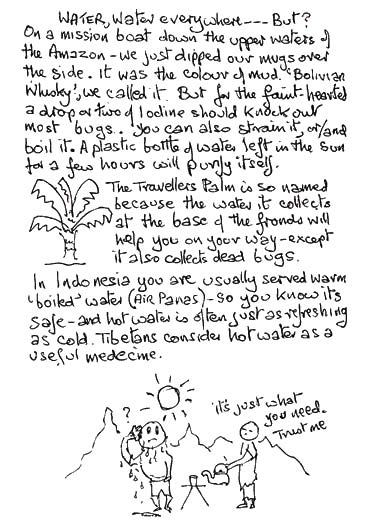 WATER, Water everywhere --- But?
On a mission boat down the upper waters of
the Amazon - we just dipped our mugs over
the side. It was the colour of mud. 'Bolivian
Whisky', we called it. But for the faint hearted
a drop or two of Iodine should knock out
most bugs. You can also strain it, or/and
boil it. A plastic bottle of water left in the sun
for a few hours will purify itself.
The Travellers Palm is so named
because the water it collects
at the base of the fronds will
help you on your way - except
it also collects dead bugs.
In Indonesia you are usually served warm
'boiled' water (Air Panas) - so you know its
safe - and hot water is often just as refreshing
as cold. Tibetans consider hot water as a
useful medecine.
?
it's just what
you need.
Trust me